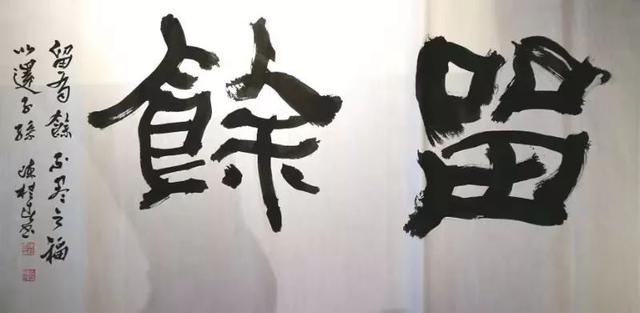 留餘
留有餘不盡之福
以還子孫